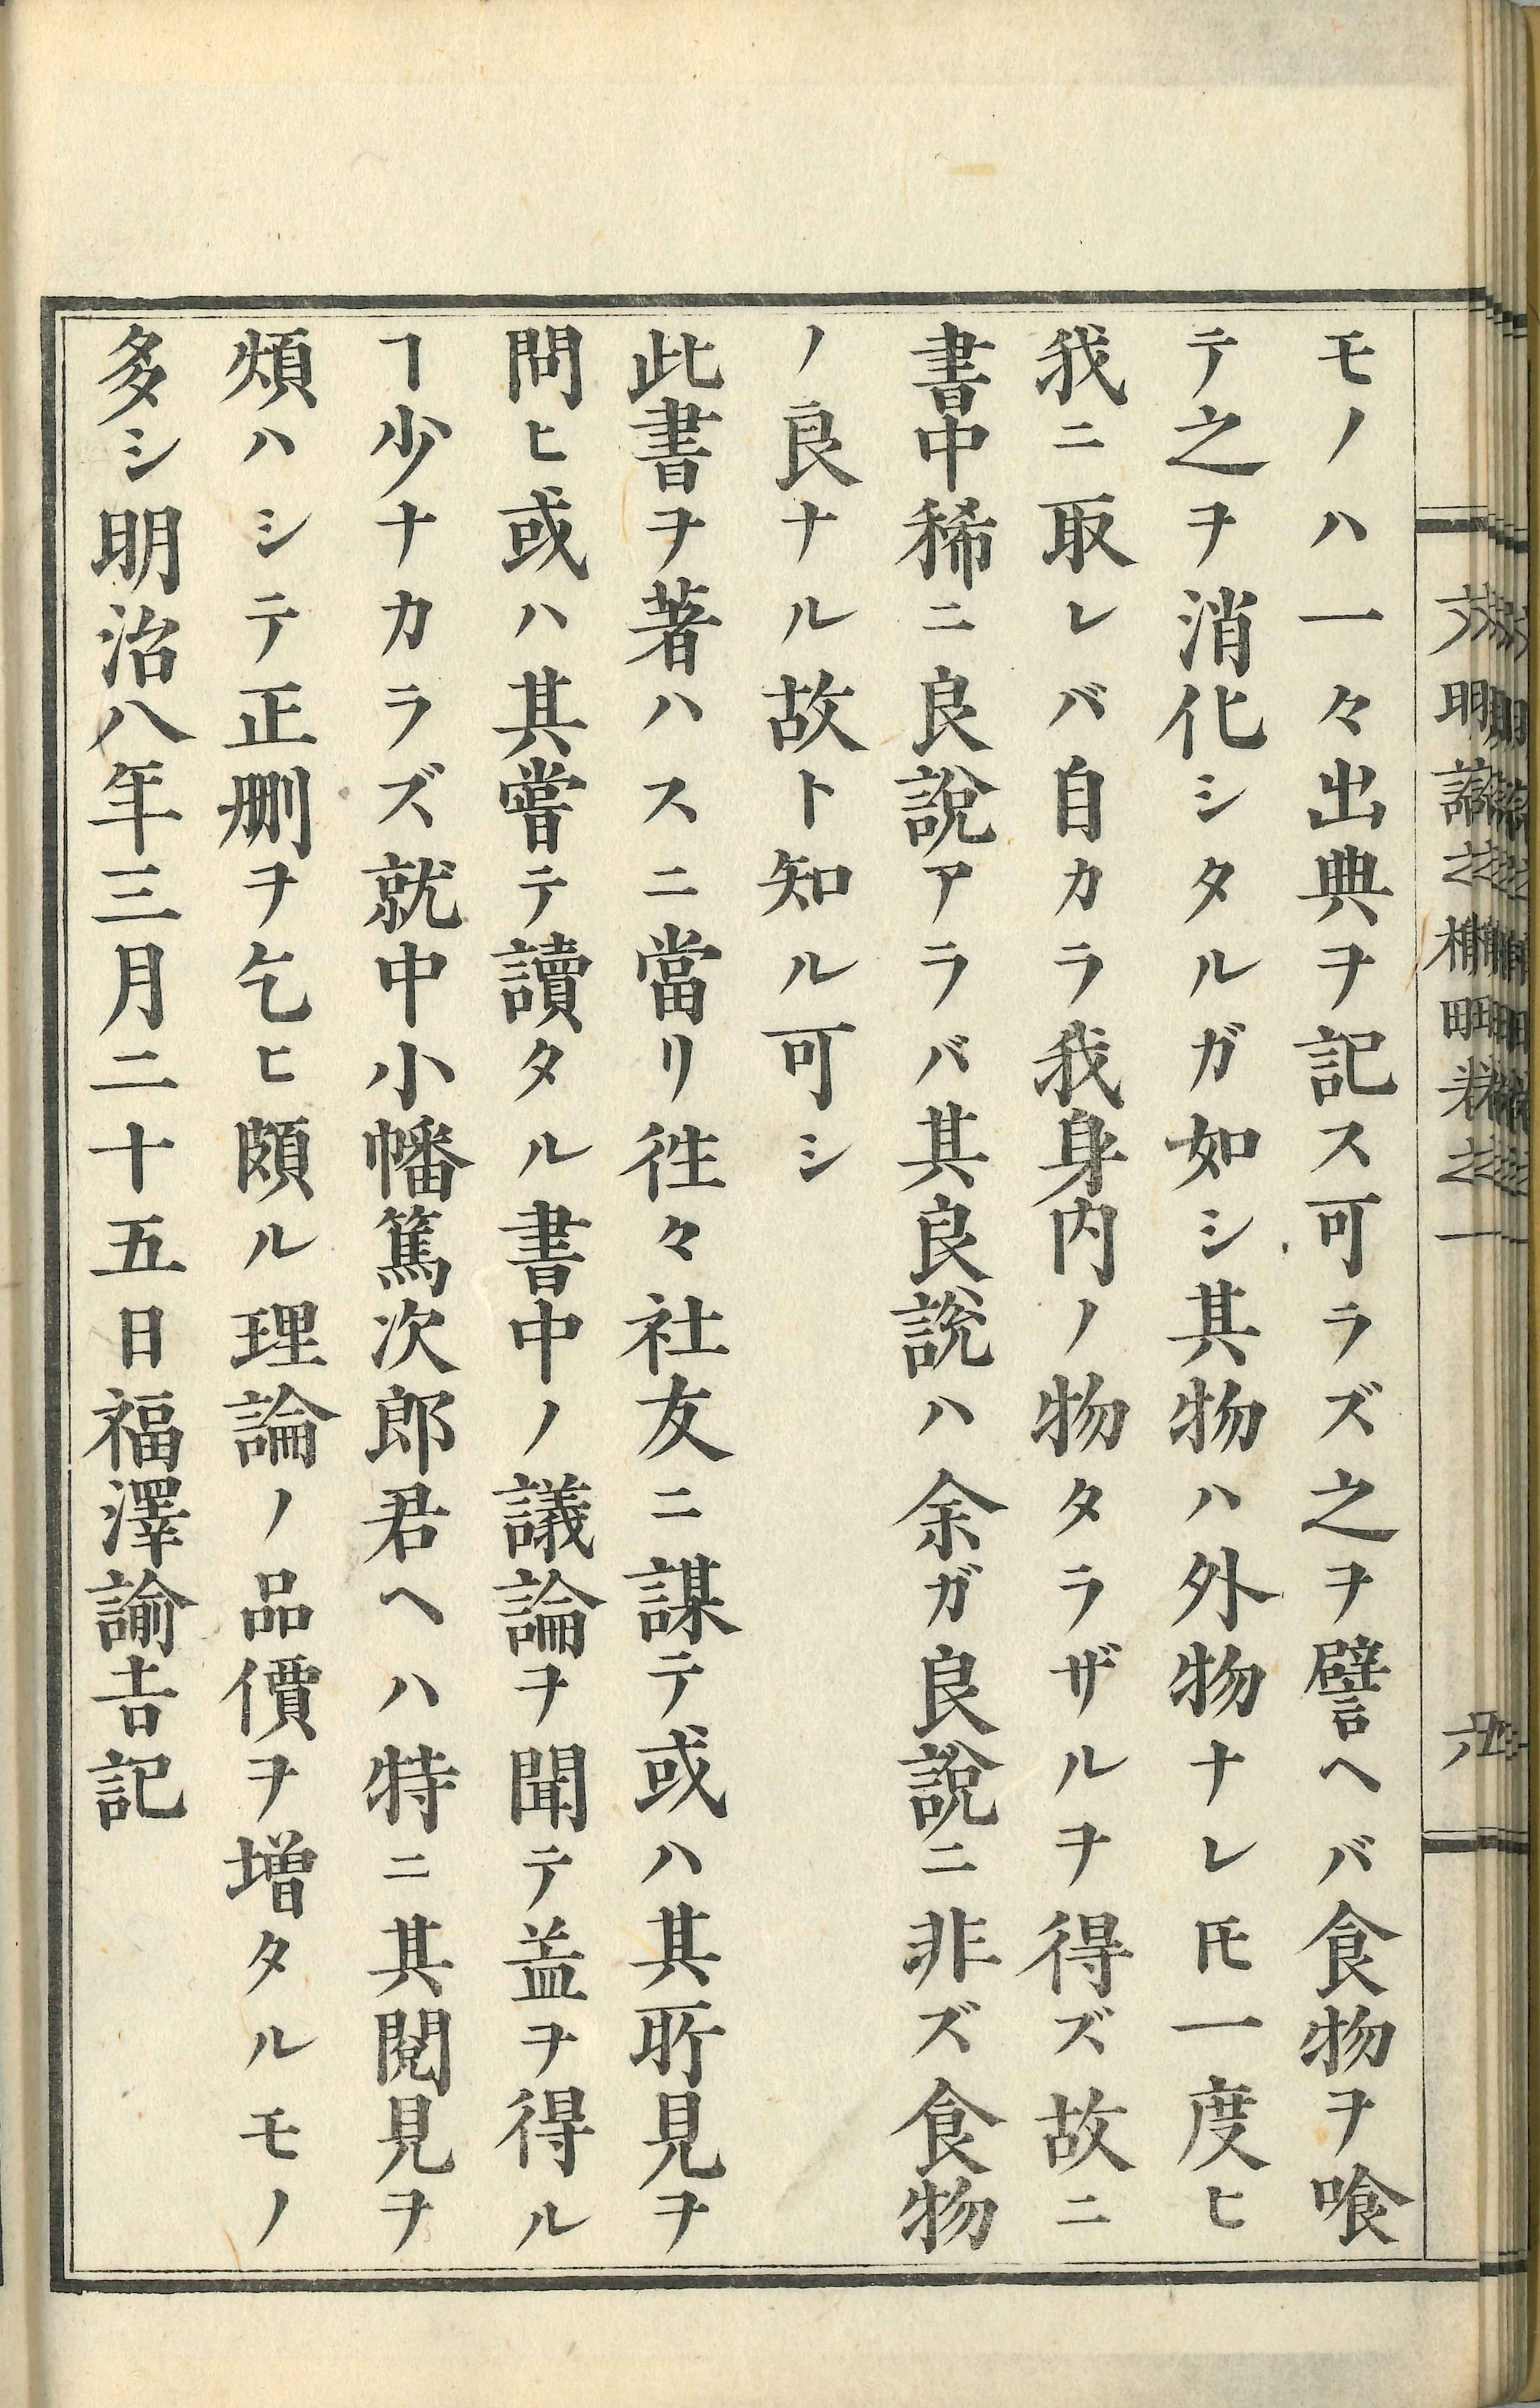 モノハ一々出典ヲ記ス可ラズ之ヲ譬ヘバ食物ヲ喰
テ之ヲ消化シタルガ如シ其物ハ外物ナレ𪜈一度ヒ
我ニ取レバ自カラ我身内ノ物タラザルヲ得ズ故ニ
書中稀ニ良說アラバ其良說ハ余ガ良說ニ非ズ食物
ノ良ナル故ト知ル可シ
此書ヲ著ハスニ當リ徃々社友ニ謀テ或ハ其所見ヲ
問ヒ或ハ其嘗テ讀タル書中ノ議論ヲ聞テ益ヲ得ル
ヿ少ナカラズ就中小幡篤次郎君ヘハ特ニ其閱見ヲ
煩ハシテ正刪ヲ乞ヒ頗ル理論ノ品價ヲ增タルモノ
多シ明治八年三月二十五日福澤諭吉記